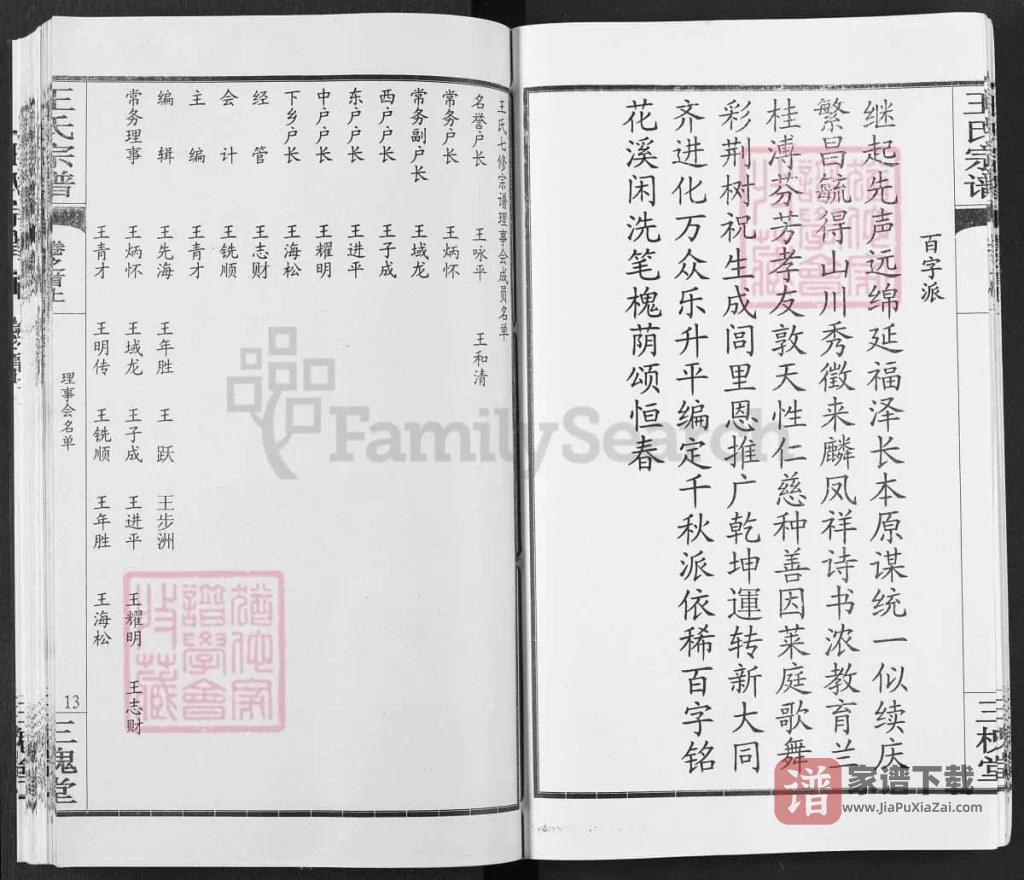 王氏宗谱
百字派
继起先声远绵延福泽长本原谋统一似续庆
繁昌毓得山川秀徵来麟凤祥诗书浓教育兰
桂溥芬芳孝友敦天性仁慈种善因莱庭歌舞
彩荆树祝生成闾里恩推广乾坤運转新大同
齐进化万众乐升平编定千秋派依稀百字铭
花溪闲洗笔槐荫颂恒春
王氏七修宗谱理事会成员名单
名誉户长 王咏平 王和清
常务户长 王炳怀
常务副户长 王域龙
西户户长 王子成
东户户长 王进平
中户户长 王耀明
下乡户长 王海松
经管 王志财
会计 王铣顺
主编 王青才
编辑 王先海 王年胜 王跃 王步洲
常务理事 王炳怀 王域龙 王子成 王进平 王耀明 王志财
王青才 王明传 王铣顺 王年胜 王海松
王氏宗谱
卷之首上
理事会名单
13
三槐堂
FamilySearch
谱
家谱下载
www.JiaPuXiaZai.com